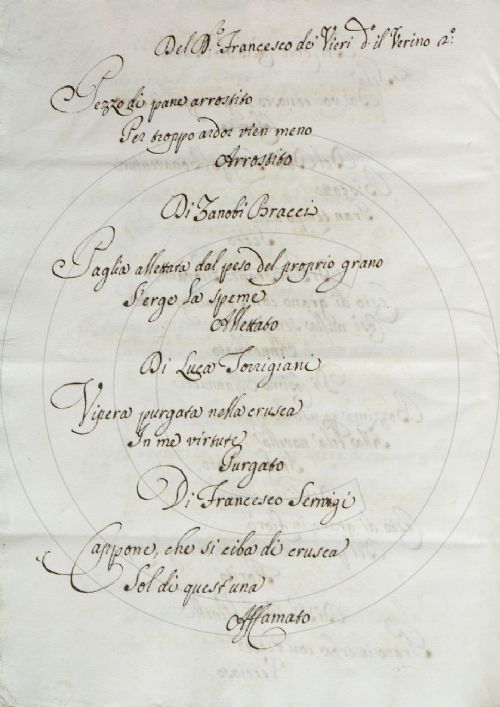 Del D.º Francesco de Vieri d.º il Verino 2.º
Pezzo di pane arrostito
Per troppo ardor vien meno
Arrostito
Di Zanobi Bracci
Paglia allettata dal peso del proprio grano
S'erge la speme
Allettato
Di Luca Torrigiani
Vipera purgata nella crusca
In me virtute
Purgato
Di Francesco Sernigi
Cappone, che si ciba di crusca
Sol di quest'una
Affamato